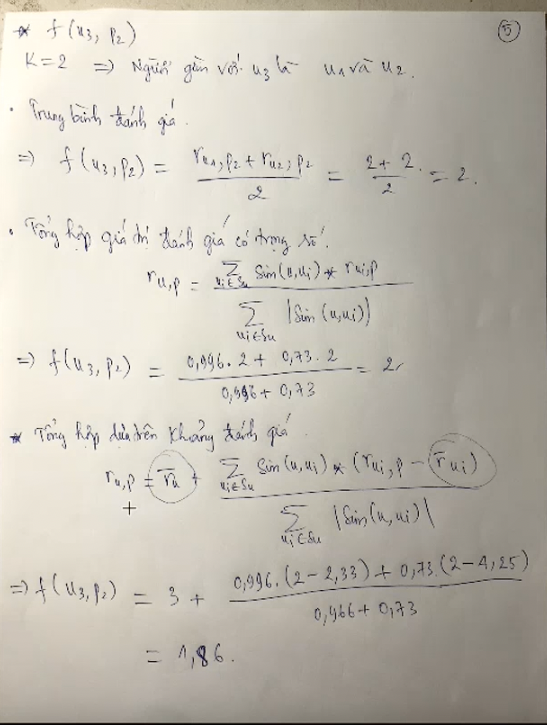 * f(u3, p2) (5)
K=2 => Người gần với u3 là u1 và u2.
• Trung bình đánh giá.
=> f(u3, p2) = (ru1,p2 + ru2,p2)/2 = (2+2)/2 = 2.
• Tổng hợp giá trị đánh giá có trọng số.
ru,p = (∑ui∈Su Sim(u,ui) * rui,p)/(∑ui∈Su |Sim(u,ui)|)
=> f(u3, p2) = (0,996.2 + 0,73.2)/(0,996 + 0,73) = 2
* Tổng hợp dựa trên khoảng đánh giá.
ru,p = r̅u + (∑ui∈Su Sim(u,ui) * (rui,p − r̅ui))/(∑ui∈Su |Sim(u,ui)|)
+
=> f(u3, p2) = 3 + (0,996.(2−2,33) + 0,73.(2−4,25))/(0,966 + 0,73)
= 1,86.